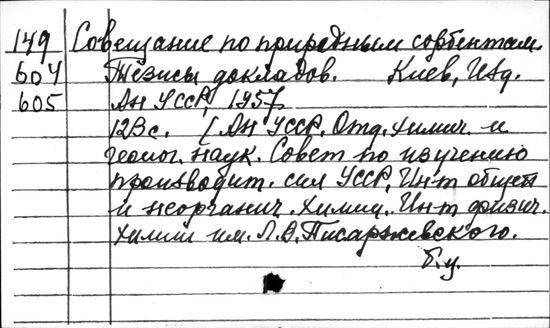 149 Совещание по природным сорбентам.
604 Тезисы докладов. Киев, Изд.
605 АН УССР, 1957
123с. [АН УССР. Отд. химич. и
геолог. наук. Совет по изучению
производит. сил УССР, Ин-т общей
и неорганич. химии. Ин-т физич.
химии им. Л.В. Писаржевского.
б.ц.